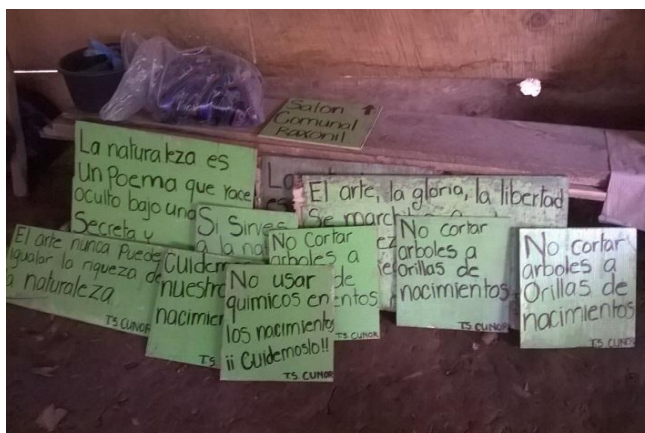 Salon
Comunal
Raxonil
La naturaleza es
Un Poema que Yace
oculto bajo una
Secreta y
La
es
El arte, la gloria, la libertad
Se
Si Sirves
a la na
El arte nunca Puede
igualar la riqueza de
a naturaleza
TS CUNOR
Cuidem
nuestro
nacimien
TS
No usar
quimicos en
los nacimientos
¡¡ Cuidemoslo!!
TS CUNOR
No Cortar
arboles a
de
entos
TS CUNOR
No cortar
arboles a
orillas de
nacimientos
TS CUNOR
No cortar
arboles a
Orillas de
nacimientos
TS CUNOR